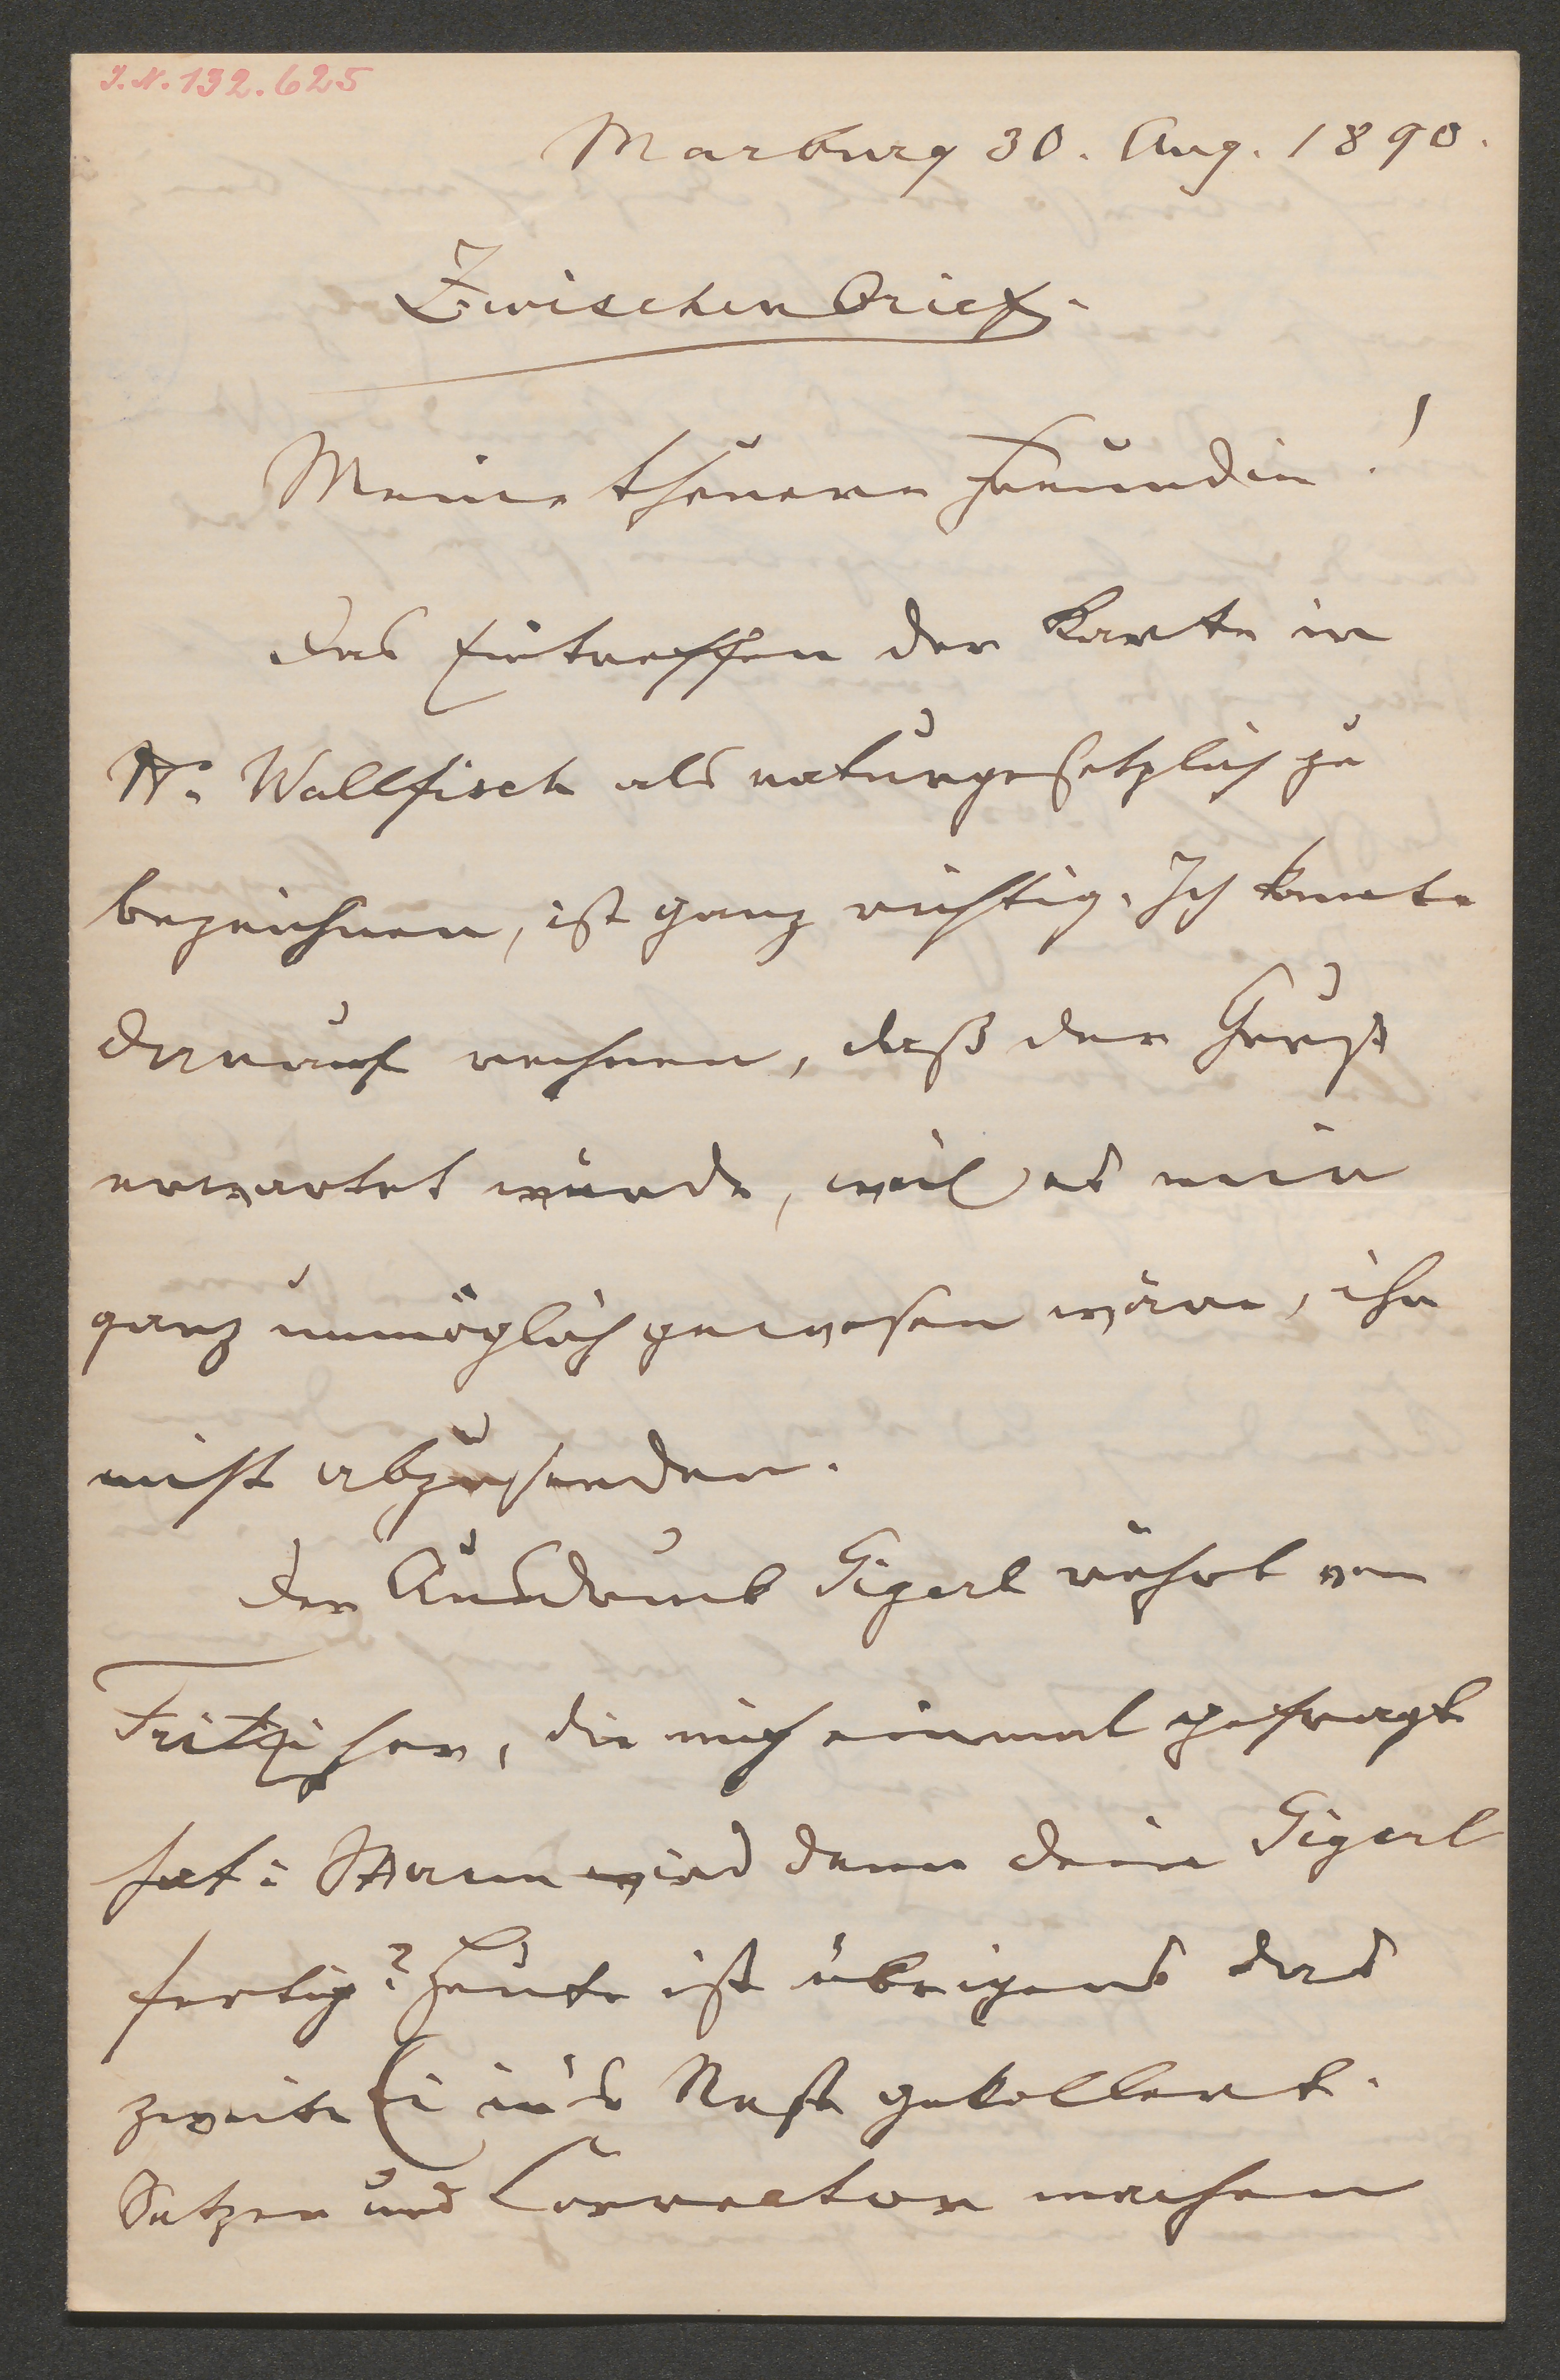 I.N. 132.625
Marburg 30. Aug. 1890.
Zwischenbrief.
Meine theuere Freundin!
Das Eintreffen der Karte in
W. Wallfisch als naturgesetzlich zu
bezeichnen, ist ganz richtig. Ich konnte
darauf rechnen, daß der Gruß
erwartet würde, weil es mir
ganz unmöglich gewesen wäre, ihn
nicht abzusenden.
Der Ausdruck Gigerl rührt von
Fritzi her, die mich einmal gefragt
hat: Wann wird denn dein Gigerl
fertig? Heute ist übrigens das
zweite Ei in's Nest gekollert.
Setzer und Corrector machen